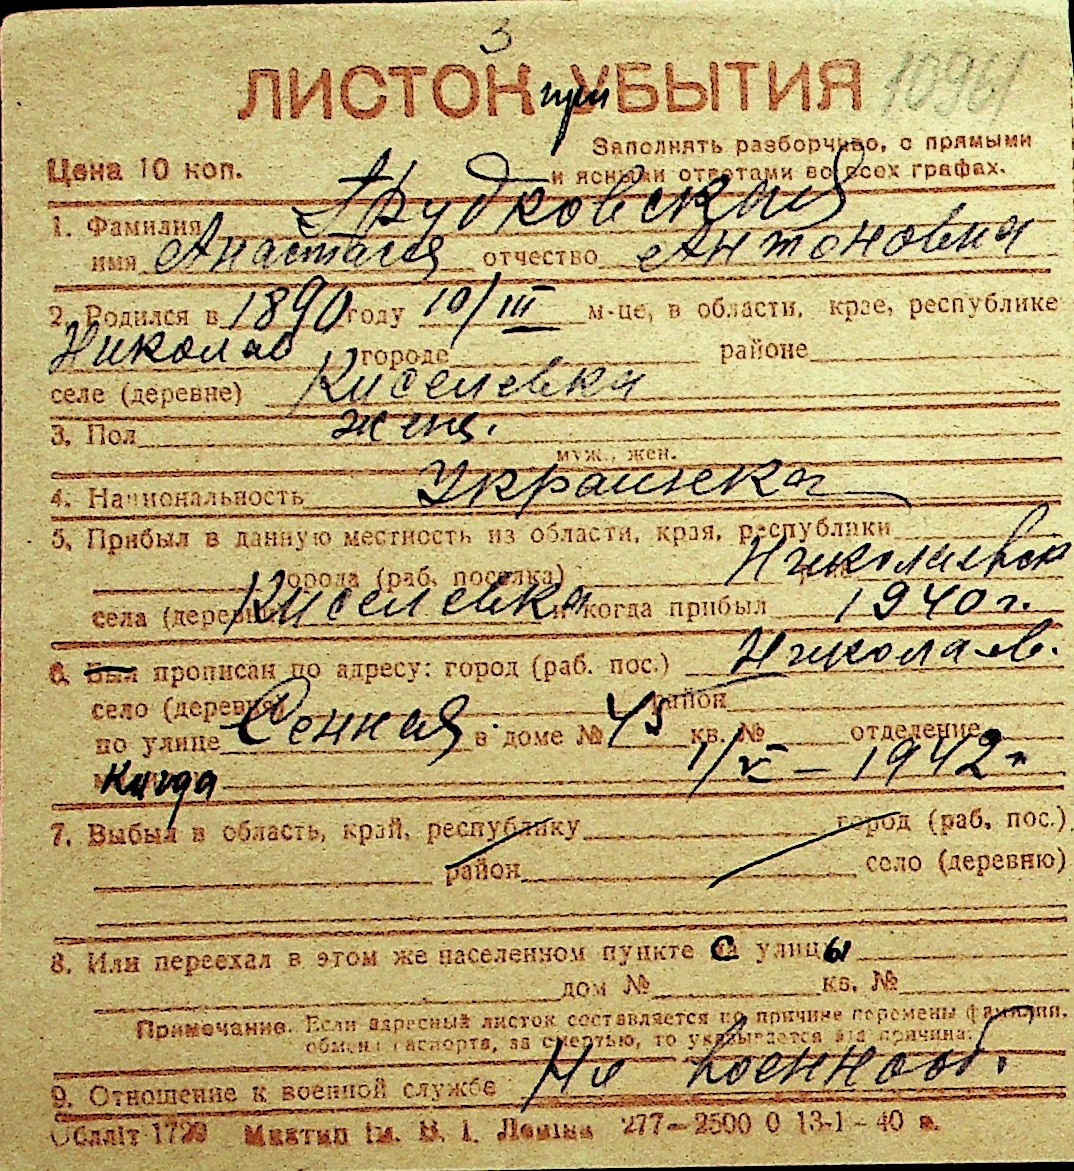 3
ЛИСТОК при УБЫТИЯ 10961
Заполнять разборчиво, с прямыми
Цена 10 коп. и ясными ответами во всех графах.
1. Фамилия
имя Анастасия отчество Антоновна
2. Родился в 1890 году 10/III м-це, в области, крае, республике
Николаев городе районе
селе (деревне) Киселевка
3. Пол женщ.
муж., жен.
4. Национальность Украинка
5. Прибыл в данную местность из области, края, республики
города (раб. поселка) Николаевск
села (деревни) Киселевка и когда прибыл 1940 г.
6. Был прописан по адресу: город (раб. пос.) Николаев.
село (деревня) район
по улице Сенная в доме № 45 кв. № отделение
Когда 1/V – 1942 г
7. Выбыл в область, край, республику город (раб. пос.)
район село (деревню)
8. Или переехал в этом же населенном пункте с улицы
дом № кв. №
Примечание. Если адресный листок составляется по причине перемены фамилии,
обмена паспорта, за смертью, то указывается эта причина.
9. Отношение к военной службе Не военнооб.
Обллiт 1729 Миктип iм. В. I. Ленiна 277–2500 0 13-1-40 в.